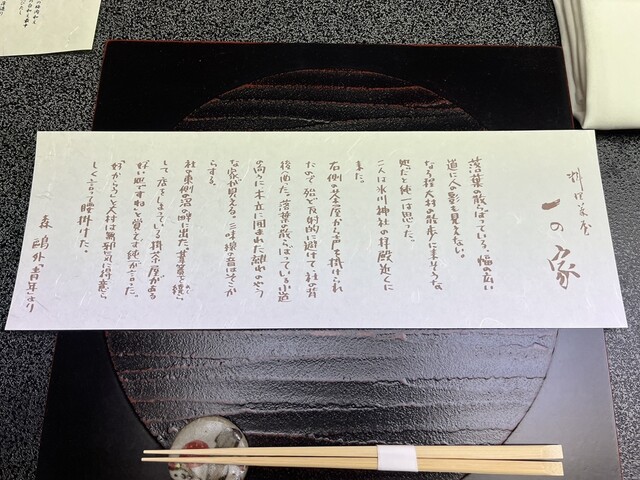 料理茶屋
一の家
落葉の散らばっている。幅の広い
道に人影も見えない。
なる程大村の散歩に来そうな
処だと純一は思った。
二人は氷川神社の拝殿近く
来た。
右側の茶屋から声を掛けられ
たので殆ど反射的に避けて社の背
後へ曲った。落葉の散らばっている小道
の向うに木立に囲まれた離れのやう
な家が見える。三味線の音はそこか
らする。
社の東側の沼の畔に出た。葦簀を繞ら
して店をしまっている掛茶屋がある
好い処ですねと覚えず純一が云った。
好からうと大村は無邪気に得意ら
しく言って腰掛けた。
森鷗外「青年」より